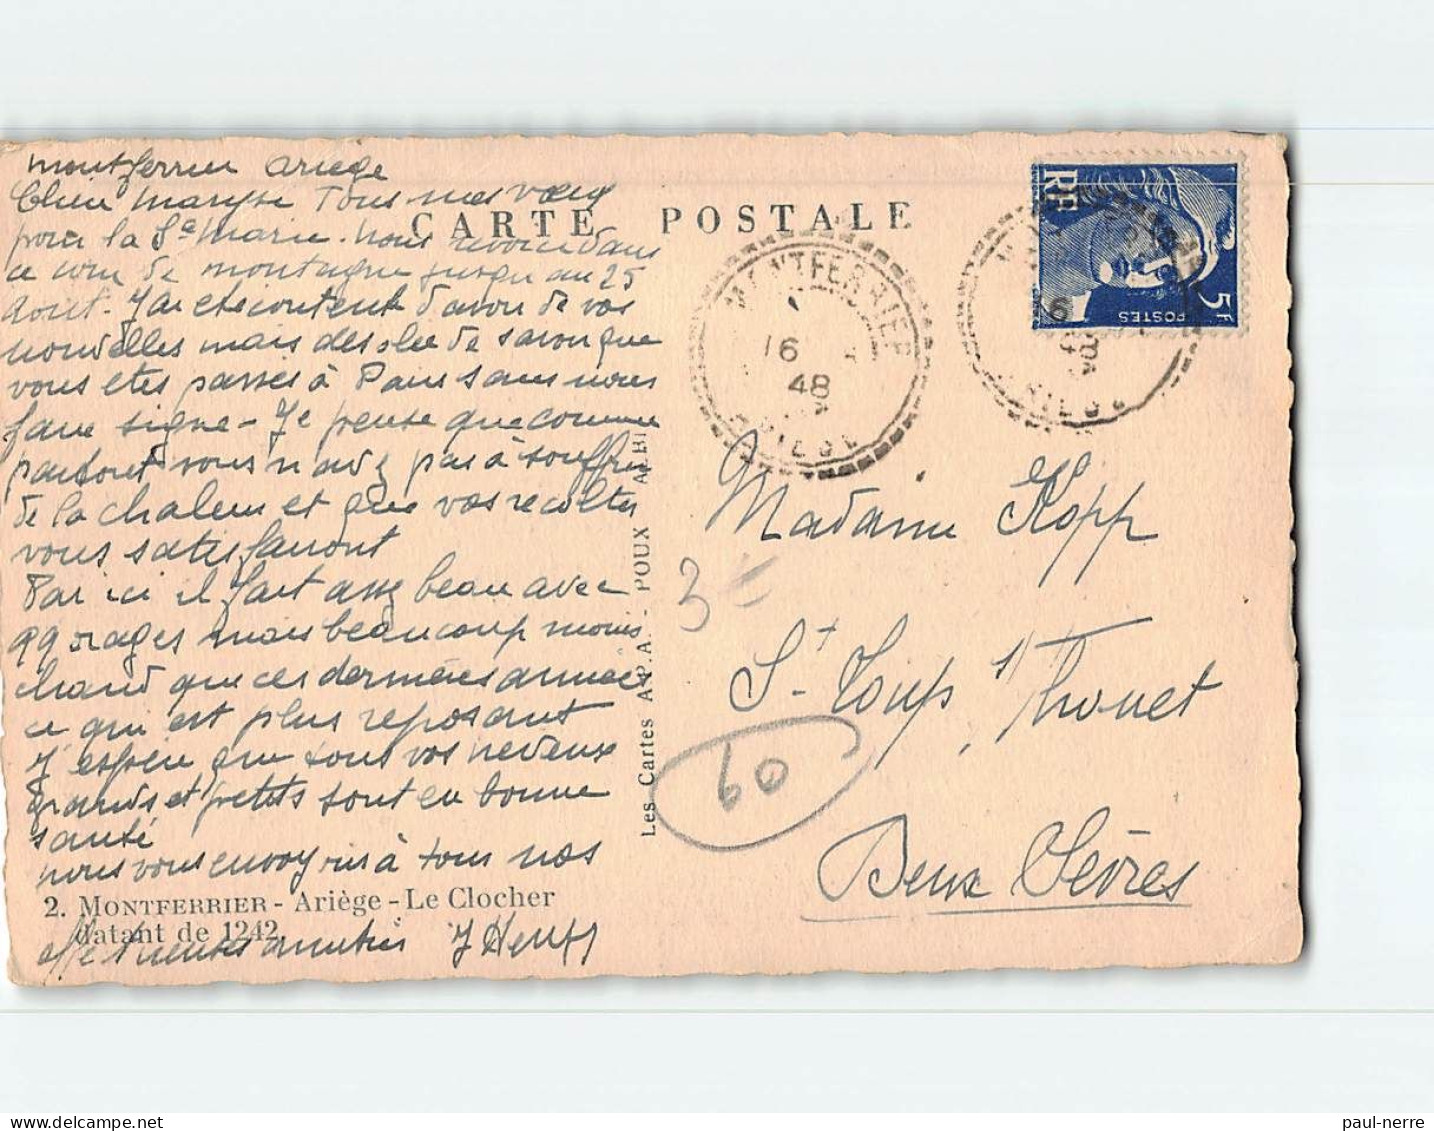 Montferrier Ariège
Chère Maryse Tous nos vœux
CARTE POSTALE
pour la Ste Marie. Nous revoici dans
ce coin de montagne jusqu'au 25
Août. J'ai été contente d'avoir de vos
nouvelles mais désolée de savoir que
vous êtes passés à Paris sans nous
faire signe - Je pense que comme
partout vous n'avez pas à souffrir
de la chaleur et que vos récoltes
vous satisfairont
Par ici il fait assez beau avec
qq orages mais beaucoup moins
chaud que ces dernières années
ce qui est plus reposant
J'espère que tous vos neveux
grands et petits sont en bonne
santé
nous vous envoyons à tous nos
2. MONTFERRIER - Ariège - Le Clocher
datant de 1242.
affectueuses amitiés J
Les Cartes A.P.A. - POUX ALBI
MONTFERRIER
16
48
ARIEGE
RF
5F
POSTES
16
8
ARIEGE
Madame Kopp
3
St Loup s/ Thouet
60
Deux Sèvres
paul-nerre